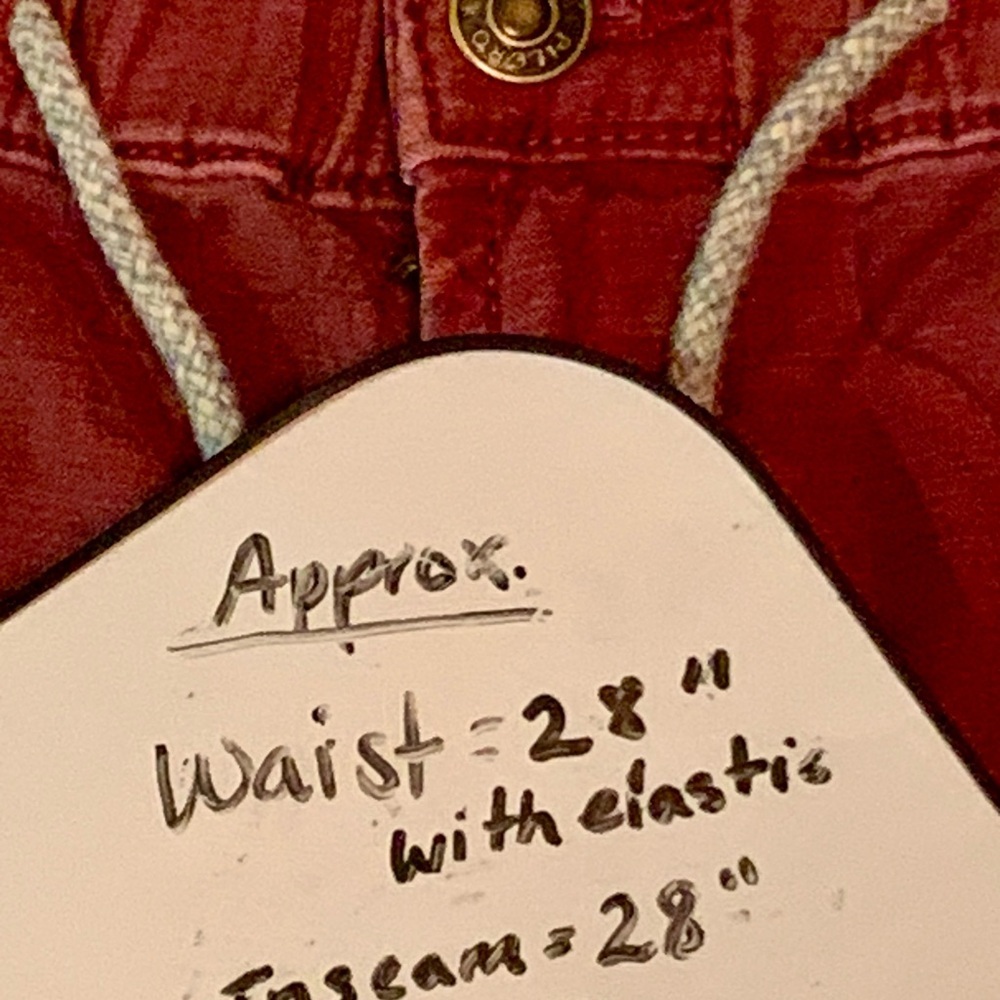 Approx.
Waist = 28"
with elastic
Inseam = 28"